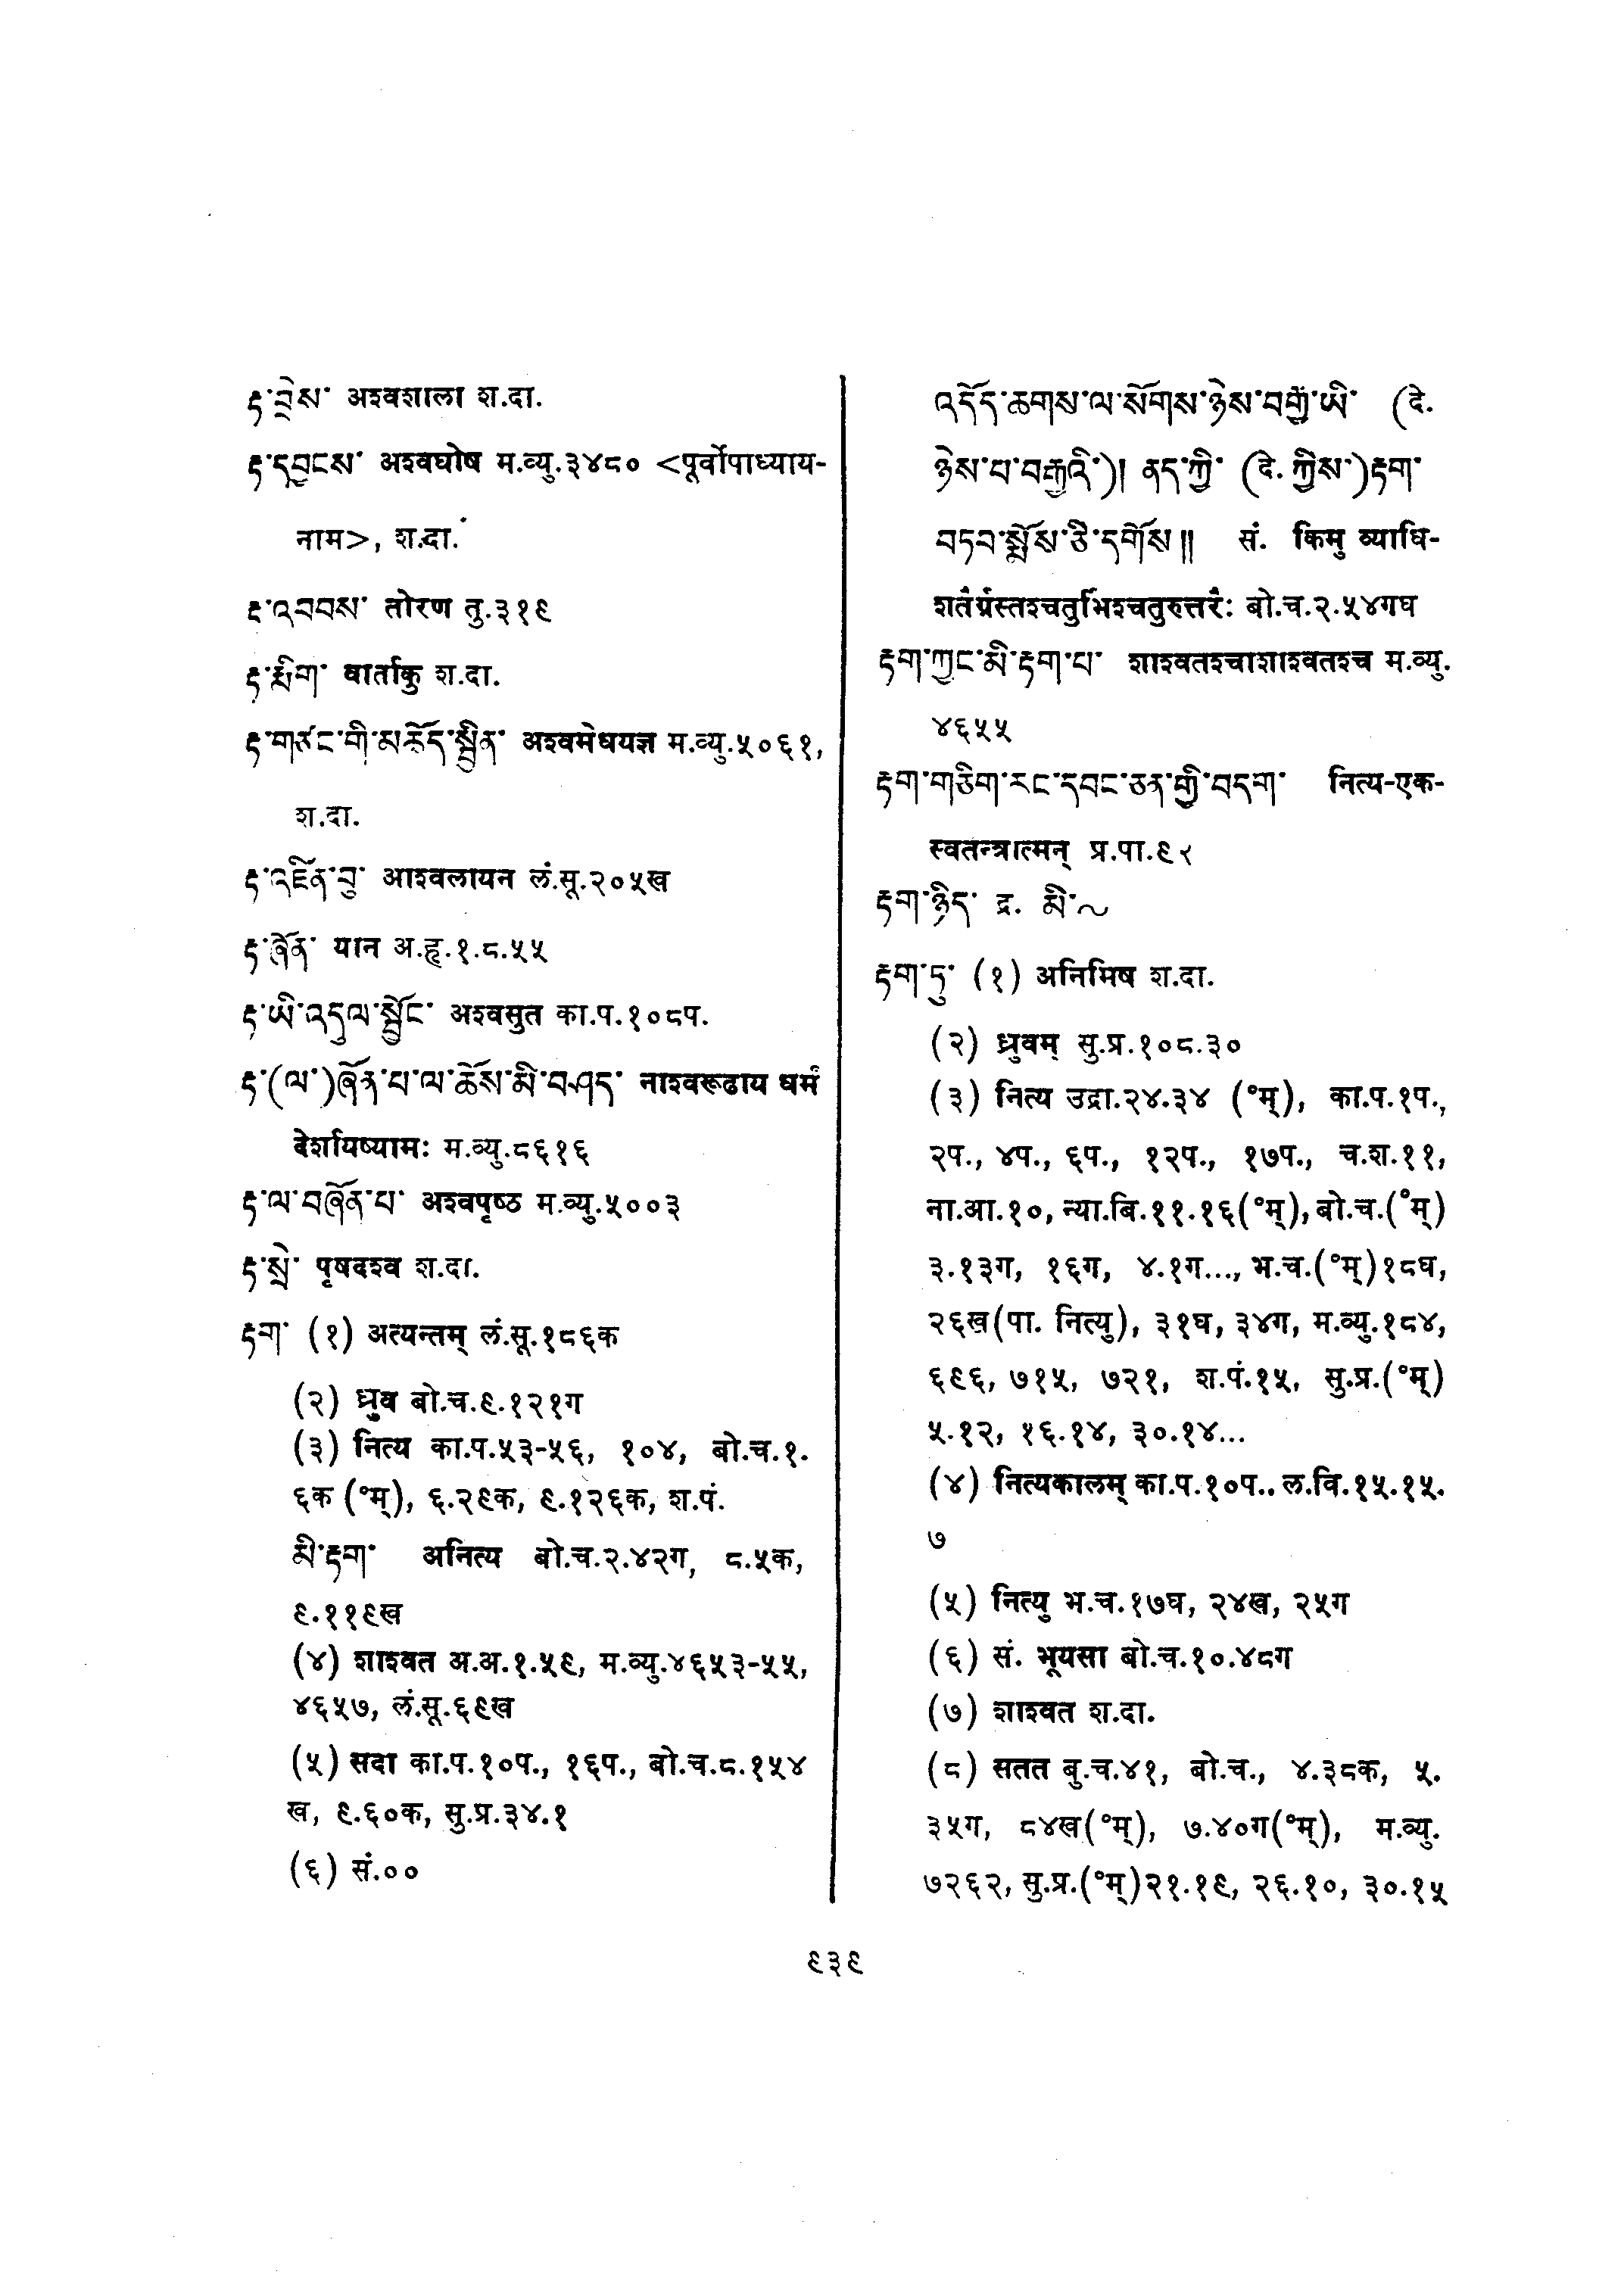 རྟ་བྲེས་ अश्वशाला श.दा.
རྟ་དབྱངས་ अश्वघोष म.व्यु.३४८० <पूर्वोपाध्याय-
नाम>, श.दा.
རྟ་འབབས་ तोरण तु.३१९
རྟ་རྨིག་ वार्ताकु श.दा.
རྟ་གཙང་གི་མཆོད་སྦྱིན་ अश्वमेधयज्ञ म.व्यु.५०६१,
श.दा.
རྟ་འཛིན་བུ་ आश्वलायन लं.सू.२०५ख
རྟ་ཞོན་ यान अ.हृ.१.८.५५
རྟ་ཡི་འདུལ་སྦྱོང་ अश्वसुत का.प.१०८प.
རྟ་(ལ་)ཞོན་པ་ལ་ཆོས་མི་བཤད་ नाश्वरूढाय धर्मं
देशयिष्यामः म.व्यु.८६१६
རྟ་ལ་བཞོན་པ་ अश्वपृष्ठ म.व्यु.५००३
རྟ་སྲེ་ पृषदश्व श.दा.
རྟག་ (१) अत्यन्तम् लं.सू.१८६क
(२) ध्रुव बो.च.९.१२१ग
(३) नित्य का.प.५३-५६, १०४, बो.च.१.
६क (°म्), ६.२९क, ९.१२६क, श.पं.
མི་རྟག་ अनित्य बो.च.२.४२ग, ८.५क,
९.११९ख
(४) शाश्वत अ.अ.१.५९, म.व्यु.४६५३-५५,
४६५७, लं.सू.६९ख
(५) सदा का.प.१०प., १६प., बो.च.८.१५४
ख, ९.६०क, सु.प्र.३४.१
(६) सं.००
འདོད་ཆགས་ལ་སོགས་ཉེས་བརྒྱ་ཡི་ (दे.
ཉེས་པ་བརྒྱའི་)། ནད་ཀྱི་ (दे. ཀྱིས་)རྟག་
བཏབ་སྨོས་ཅི་དགོས༎ सं. किमु व्याधि-
शतैर्ग्रस्तश्चतुर्भिश्चतुरुत्तरैः बो.च.२.५४गघ
རྟག་ཀྱང་མི་རྟག་པ་ शाश्वतश्चाशाश्वतश्च म.व्यु.
४६५५
རྟག་གཅིག་རང་དབང་ཅན་གྱི་བདག་ नित्य-एक-
स्वतन्त्रात्मन् प्र.पा.
རྟག་ཉིད་ द्र. མི་~
རྟག་ཏུ་ (१) अनिमिष श.दा.
(२) ध्रुवम् सु.प्र.१०८.३०
(३) नित्य उद्रा.२४.३४ (°म्), का.प.१प.,
२प., ४प., ६प., १२प., १७प., च.श.११,
ना.आ.१०, न्या.बि.११.१६(°म्), बो.च.(°म्)
३.१३ग, १६ग, ४.१ग..., भ.च.(°म्)१८घ,
२६ख(पा. नित्यु), ३१घ, ३४ग, म.व्यु.१८४,
६९६, ७१५, ७२१, श.पं.१५, सु.प्र.(°म्)
५.१२, १६.१४, ३०.१४...
(४) नित्यकालम् का.प.१०प.. ल.वि.१५.१५.
७
(५) नित्यु भ.च.१७घ, २४ख, २५ग
(६) सं. भूयसा बो.च.१०.४८ग
(७) शाश्वत श.दा.
(८) सतत बु.च.४१, बो.च., ४.३८क, ५.
३५ग, ८४ख(°म्), ७.४०ग(°म्), म.व्यु.
७२६२, सु.प्र.(°म्)२१.१९, २६.१०, ३०.१५
९३९